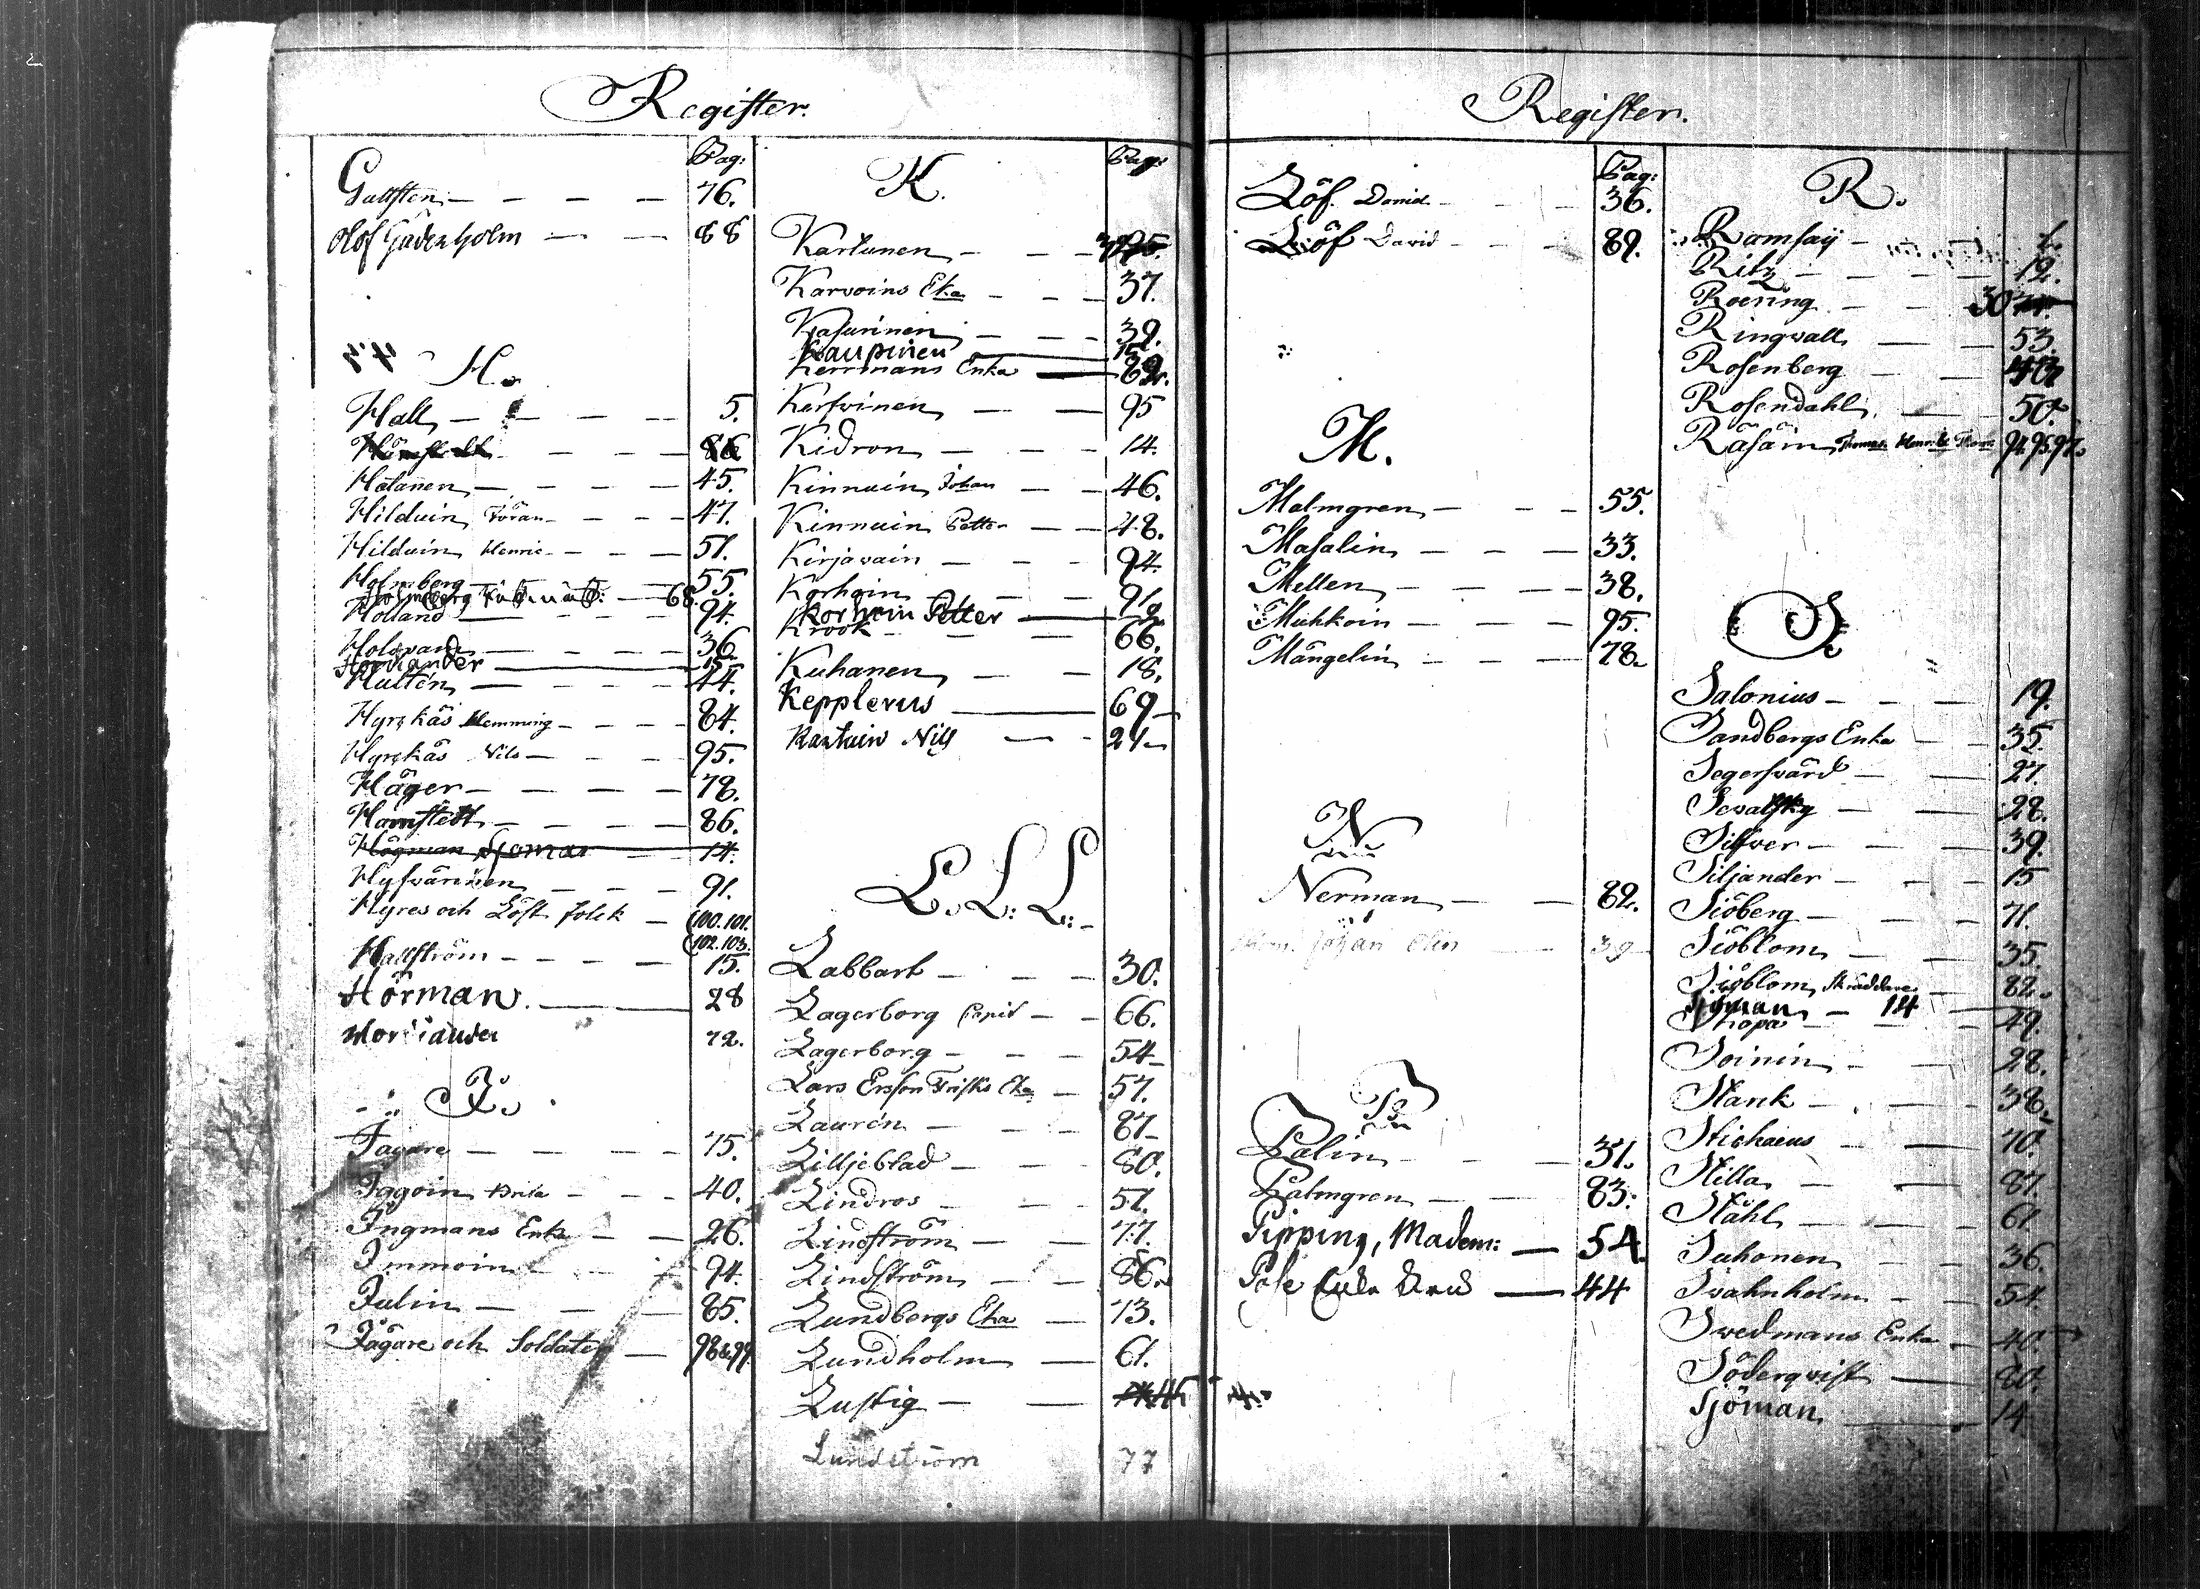 Register.
Pag:
Gullsten 76.
Olof Gäderholm 88
H.
Hall 5.
Hatanen 45.
Hilduin Jöran 47.
Hilduin Henric 51.
Holmberg 55.
Holmberg 68.
Holland 94.
36.
Hornander 15
Hultén 44.
Hyrckäs Hemming 84.
Hyrckäs Nils 95.
Häger 78.
Hamstedt 86.
Högman Sjöman 14.
Hyfvärinen 91.
Hyres och Löst folck 100.101.
102.103.
Hallström 15.
Hörman 28
72.
I.
Jagare 75.
Iggoin Brita 40.
Ingmans Enka 26.
Immoin 94.
Julin 85.
Jägare och Soldater 98 & 99.
Pag:
K.
Kartunen
Karvoins Eka 37.
Kasurinen 39.
Kaupinen 15
Herrmans Enka
Kersvinen 95
Kidron 14.
Kinnuin Johan 46.
Kinnuin Petter 48.
Kirjavain 94.
Korhoin 91.
Korhoin Petter
Krook 66.
Kuhanen 18.
Kepplerus 69
Kartuin Nils 21
L. L: L:
Labbart 30.
Lagerborg Capit 66.
Lagerborg 54
Lars Ersson Frisks Eka 57.
Laurén 87
Lilljeblad 80.
Lindros 51.
Lindström 77.
Lindström 86.
Lundbergs Eka 73.
Lundholm 61.
Lustig
Lundström 77
Register.
Pag:
Löf David 36.
Löf David 89.
M.
Malmgren 55.
Masalin 33.
Mellen 38.
Muhkoin 95.
Mängelin 78.
N
Nerman 82.
Johan Olin 39
P
Palin 31.
Palmgren 83.
Pipping, Madem: 54.
44
R.
Ramsaij
Ritz 12.
Roering 30
Ringwall 53.
Rosenberg
Rosendahl 50.
Räsäin Thomas Henric 94.95.97.
S.
Salonius 19.
Sandbergs Enka 35.
Segersvärd 27.
28.
Silfver 39.
Siljander 15
Siöberg 71.
Siöblom 35.
Siöblom Skräddare 82.
Sjöman 14
49.
Soinin 28.
Stank 38.
Stichaeus 70.
Stilla 87.
Ståhl 61
Suhonen 36.
Svahnholm 54.
Svedmans Enka 40.
Söderqvist 80.
Sjöman 14